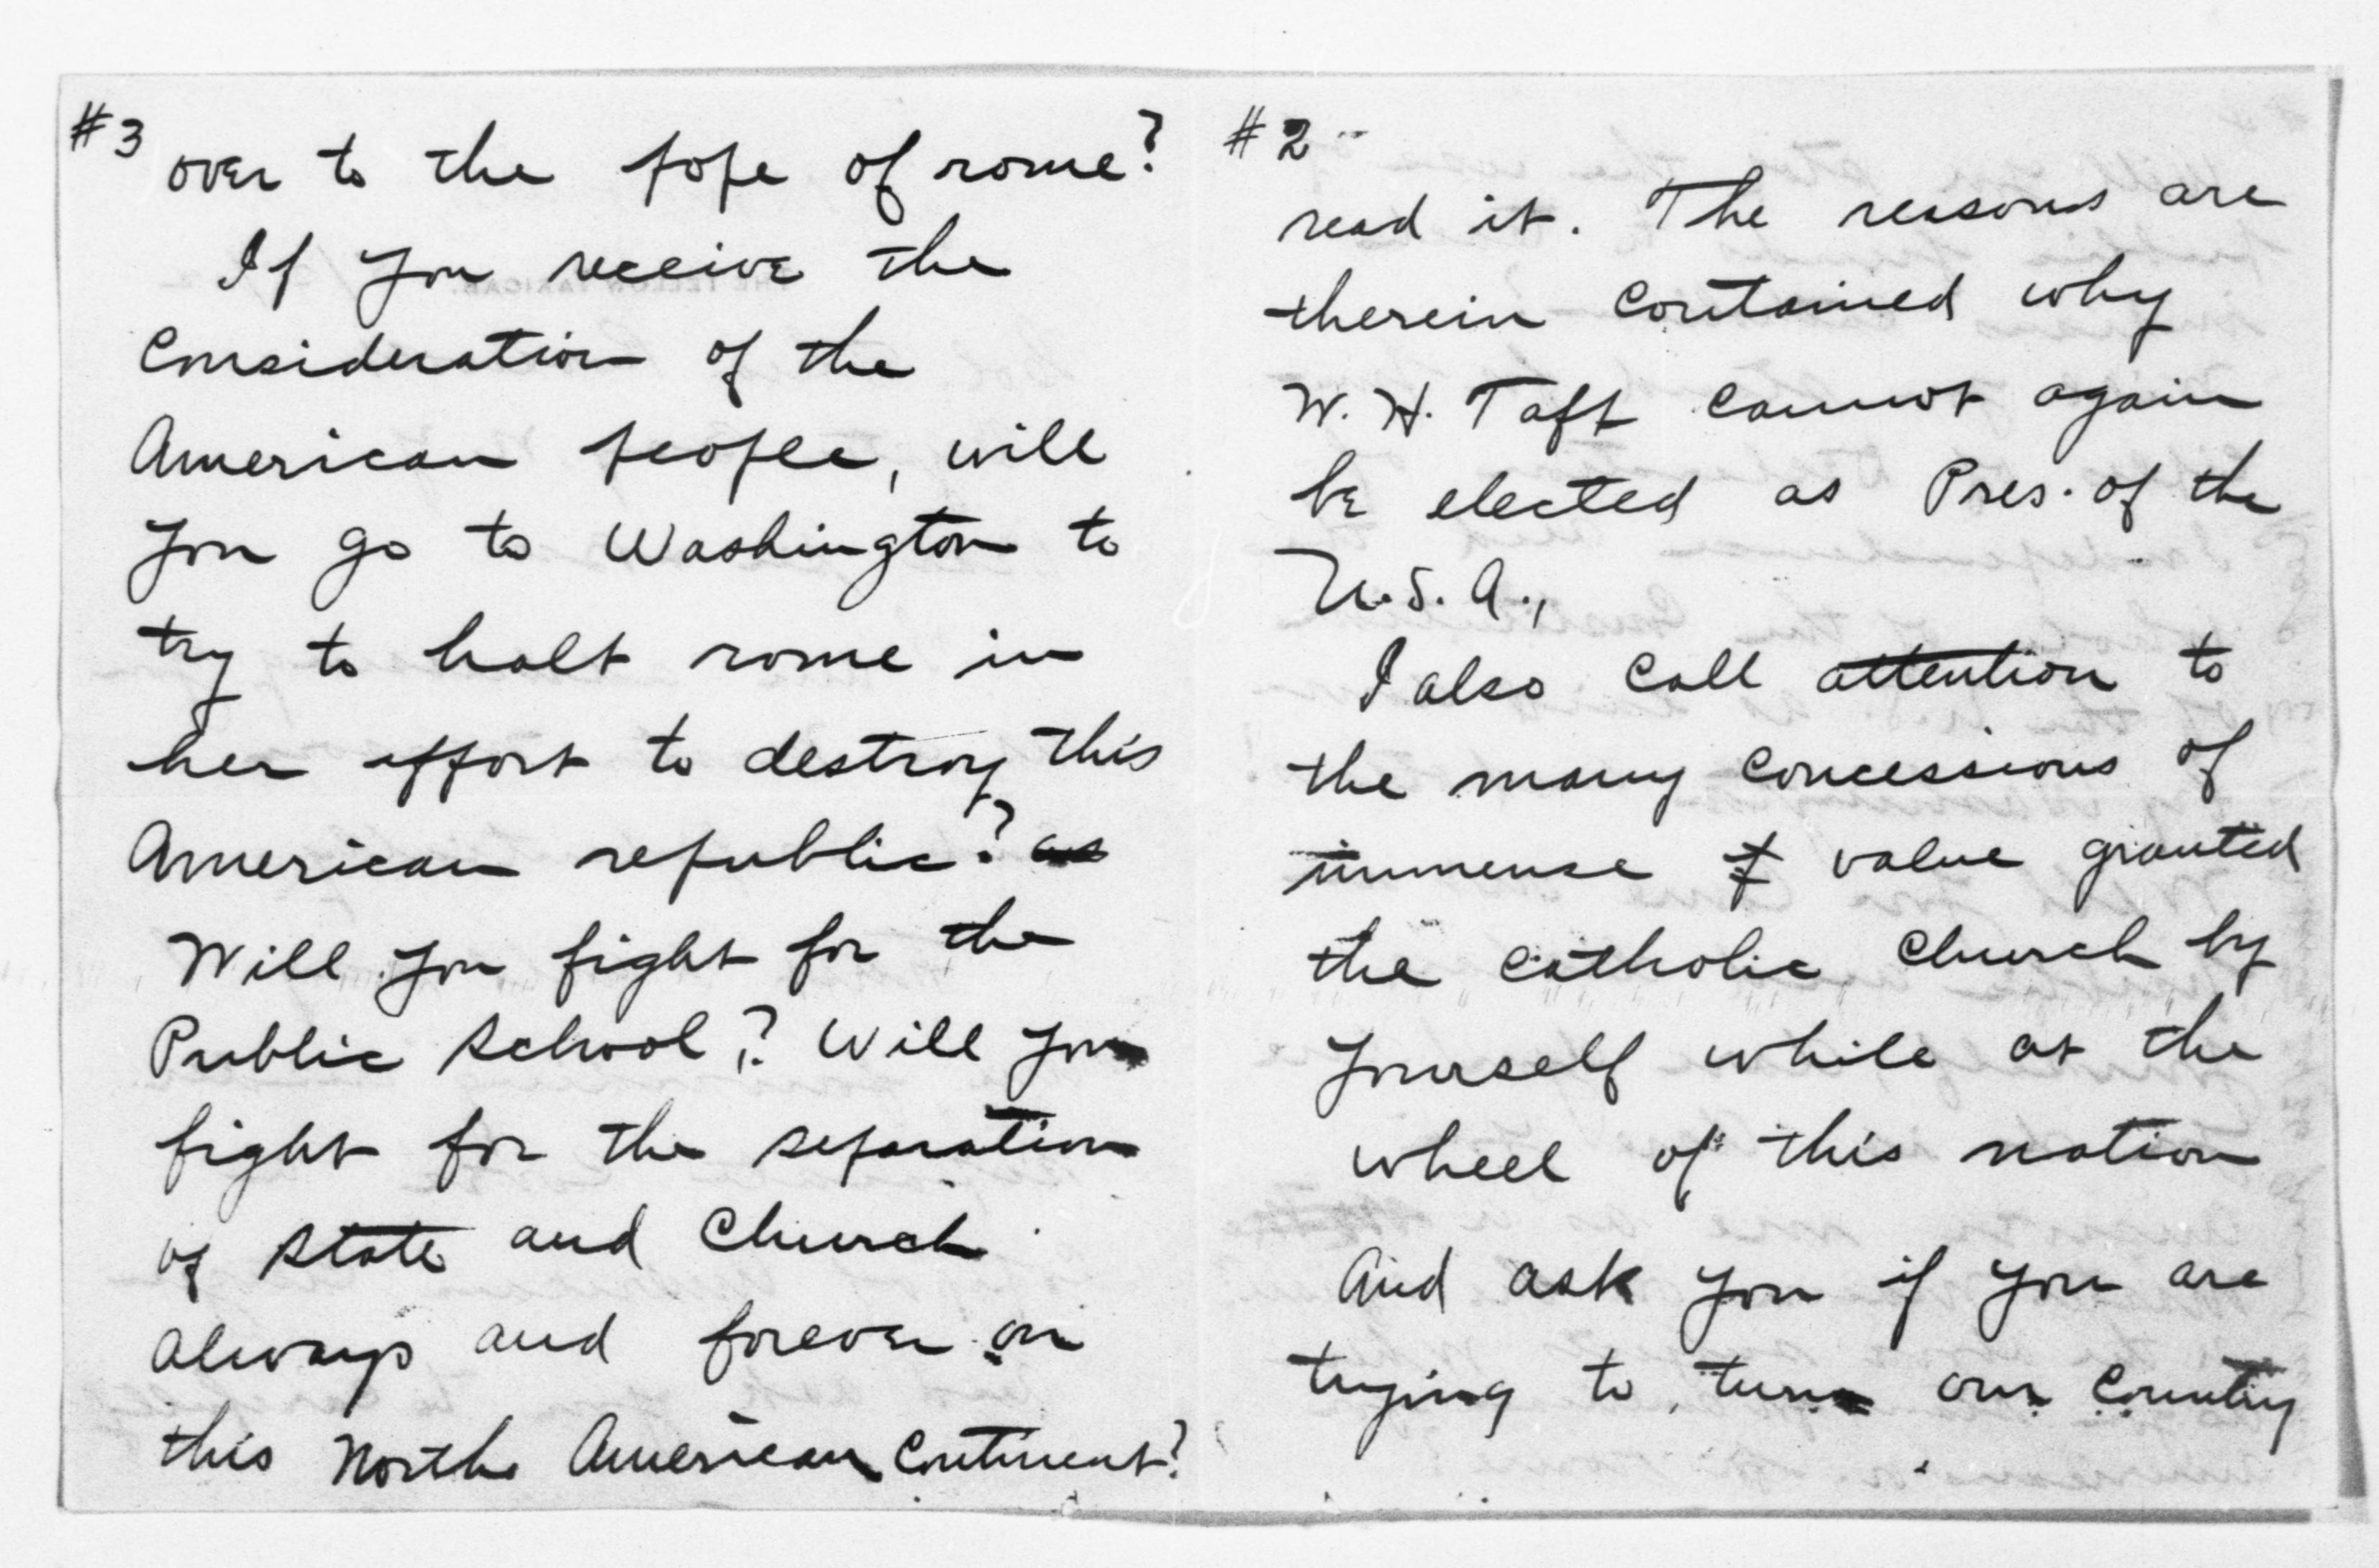 #2
read it. The reasons are
therein contained why
W. H. Taft cannot again
be elected as Pres. of the
U.S.A.,
I also call attention to
the many concessions of
immense value granted
the catholic church by
yourself while at the
wheel of this nation
And ask you if you are
trying to turn our country
#3
over to the pope of rome?
If you receive the
consideration of the
American people, will
you go to Washington to
try to halt rome in
her effort to destroy this
American republic?
Will you fight for the
Public School? Will you
fight for the separation
of state and church
always and forever on
this North American continent?